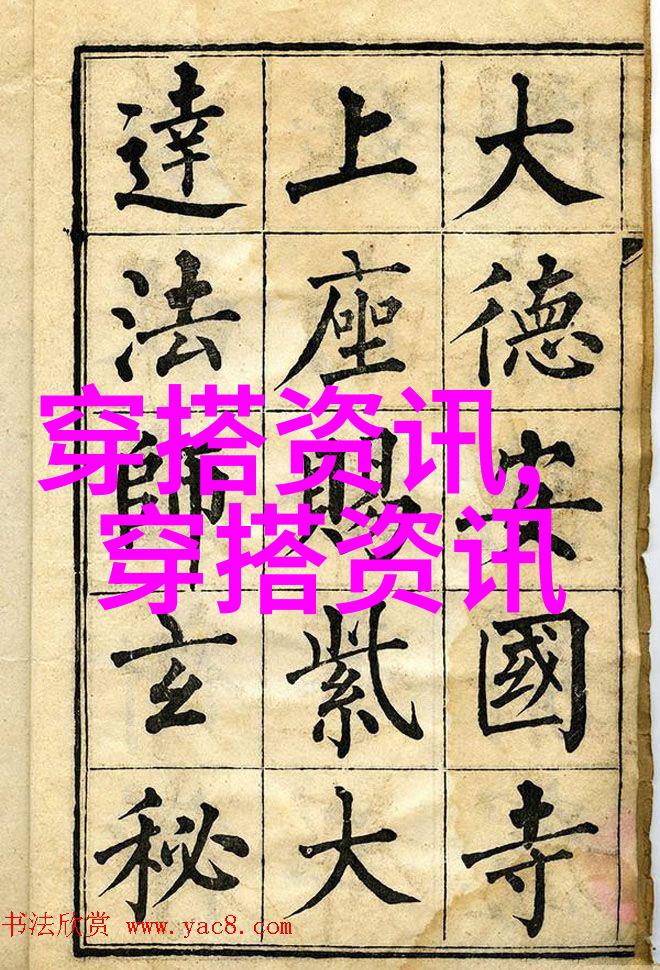 大德安國寺
上座賜紫大
達法師玄秘
穿搭资讯,
穿搭资讯
书法欣赏 www.yac8.com